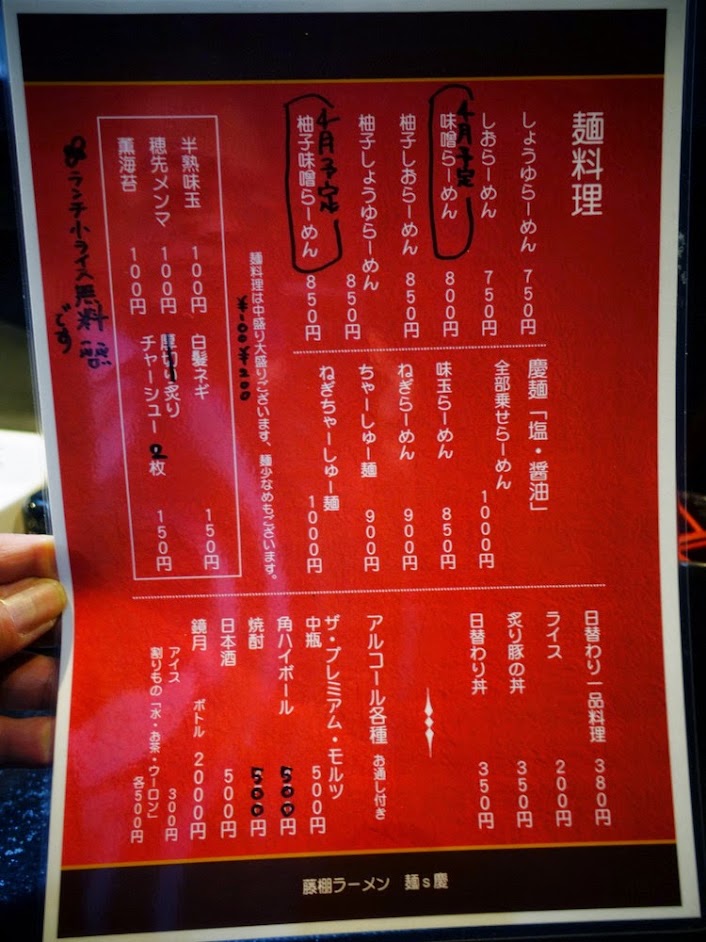 麺料理
しょうゆらーめん 750円
しおらーめん 750円
4月予定
味噌らーめん 800円
柚子しおらーめん 850円
柚子しょうゆらーめん 850円
4月予定
柚子味噌らーめん 850円
慶麺「塩・醤油」
全部乗せらーめん 1000円
味玉らーめん 850円
ねぎらーめん 900円
ちゃーしゅー麺 900円
ねぎちゃーしゅー麺 1000円
麺料理は中盛り大盛りございます、麺少なめもございます。
¥100 ¥200
半熟味玉 100円
穂先メンマ 100円
薫海苔 100円
白髪ネギ 150円
厚切り炙り
チャーシュー2枚 150円
ランチ小ライス無料
です
日替わり一品料理 380円
ライス 200円
炙り豚の丼 350円
日替わり丼 350円
アルコール各種 お通し付き
ザ・プレミアム・モルツ
中瓶 500円
角ハイボール 500円
焼酎 500円
日本酒 500円
鏡月 ボトル 2000円
アイス 300円
割りもの「水・お茶・ウーロン」 各500円
藤棚ラーメン 麺s慶